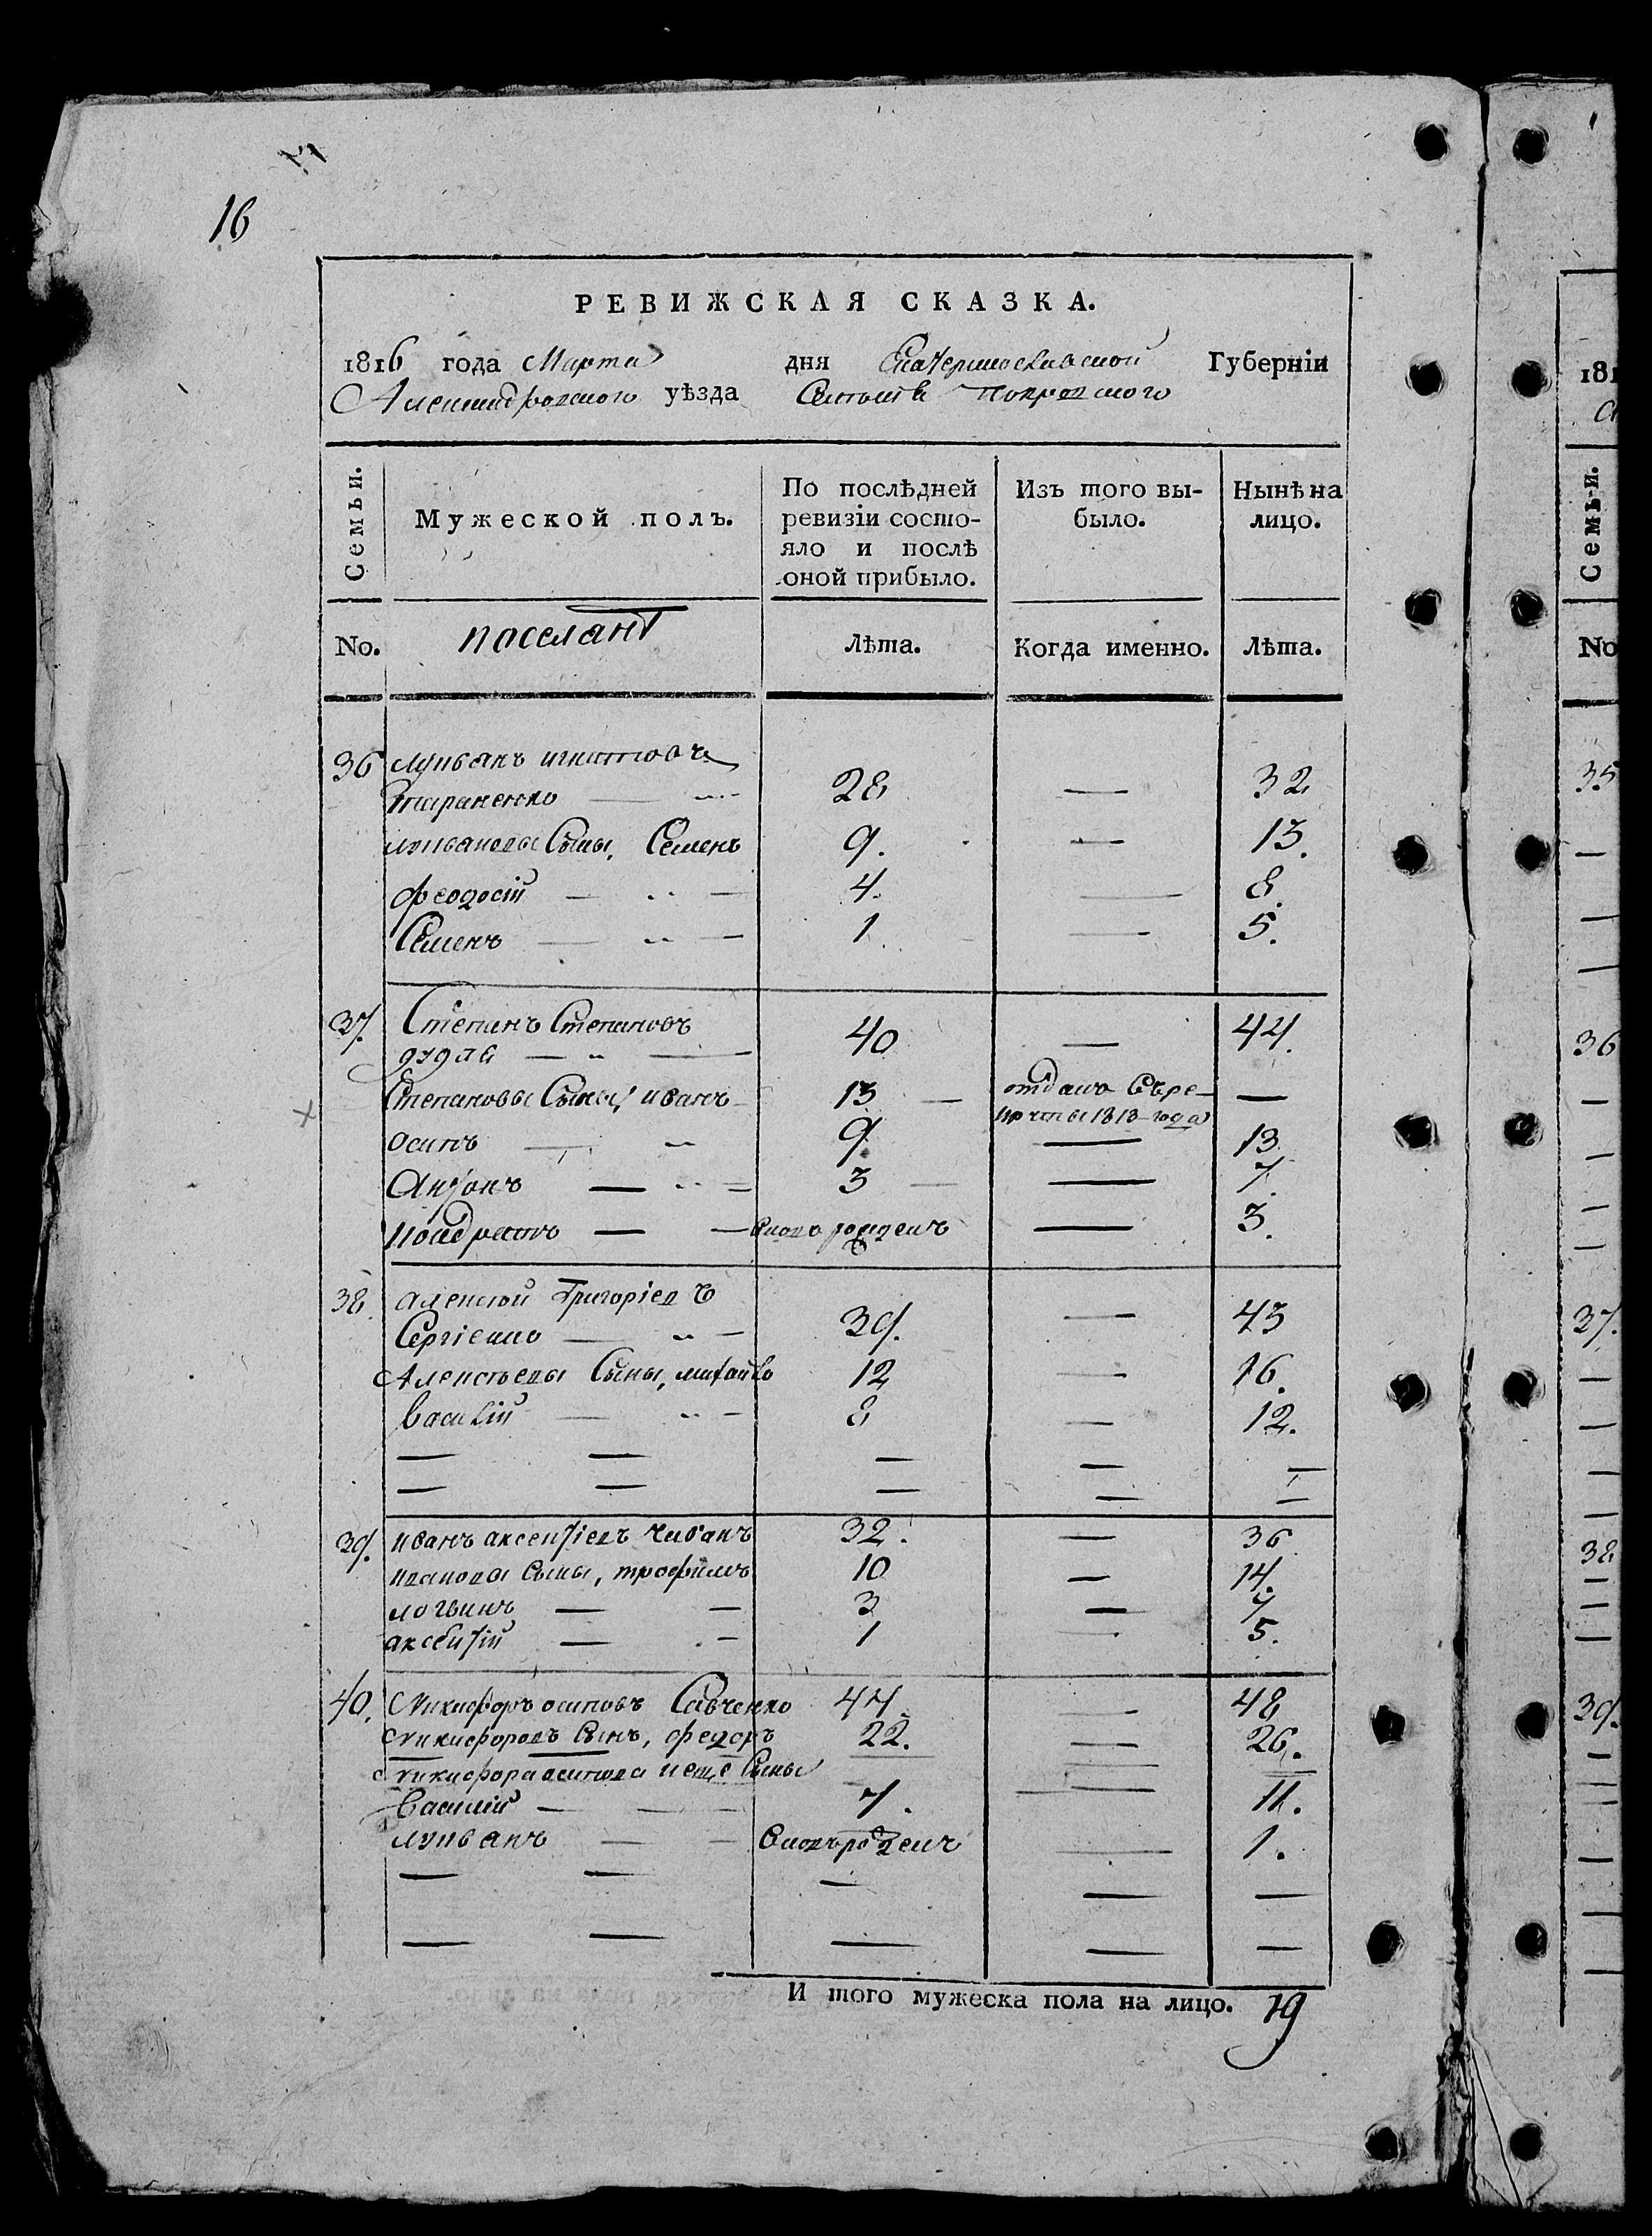 16
РЕВИЖСКАЯ СКАЗКА.
1816 года Марта дня Екатеринославской Губерніи
Александровского уѣзда Селенія Покровского
Семьи.
Мужеской полъ.
По послѣдней ревизіи состо-
яло и послѣ
оной прибыло.
Изъ того вы-
было.
Нынѣ на
лицо.
No.
поселянъ
Лѣта.
Когда именно.
Лѣта.
36 Лукьянъ игнатовъ
Тараненко — 28 — 32
лукьяновы Сыны, Семенъ 9. — 13.
феодосій — 4. — 8.
Семенъ — 1 — 5.
37. Степанъ Степановъ
дудка — 40 — 44.
Степановы Сыны, иванъ 13 — отданъ Въре-
круты 1813 года —
осипъ — 9. — 13.
Антонъ — 3 — 7.
Кондратъ — вновь рожденъ — 3.
38. алексей Григоріевъ
Сергіенко — 39. — 43
Алексѣевы Сыны, михайло 12 — 16.
Василій — 8 — 12.
39. иванъ аксентіевъ Чабанъ 32. — 36
ивановы Сыны, трофимъ 10 — 14.
логвинъ — 3 — 7
аксентій — 1 — 5.
40. Никифоръ осиповъ Савченко 44 — 48
Никифоровъ Сынъ, федоръ 22. — 26.
Никифора осипова и еще Сыны
Василій — 7. — 11.
лукьянъ — Вновь рожденъ — 1.
И того мужеска пола на лицо. 19
181
No
35
36
37.
38
39.